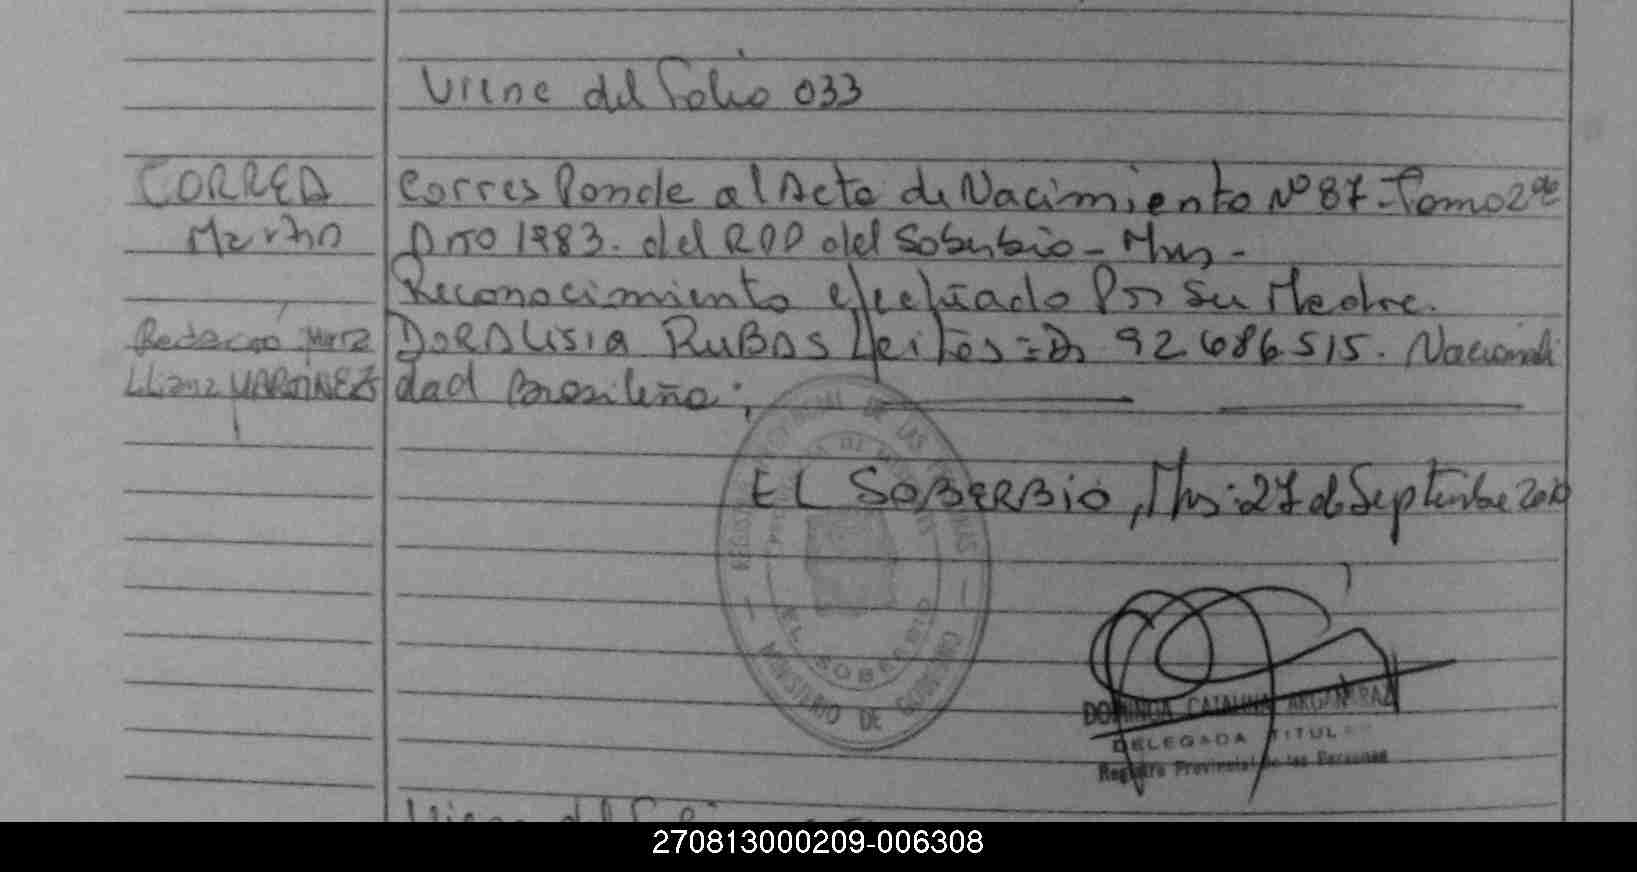 Viene del Folio 033
CORREA
Martin
Corresponde al Acta de Nacimiento Nº 87 - Tomo 2º
Año 1983. del RPP del Soberbio - Mns -
Reconocimiento efectuado Por Su Madre.
DORALISIA RUBAS Leites = 92 686 515. Nacionali
dad Brasileña;
Redactó
MARTINEZ
EL SOBERBIO, Mns: 27 de Septiembre
REGISTRO PROVINCIAL DE LAS PERSONAS
MINISTERIO DE GOBIERNO
EL SOBERBIO
DOMINGA CATALINA ARGAÑARAZ
DELEGADA TITULAR
Registro Provincial de las Personas
Viene del
270813000209-006308